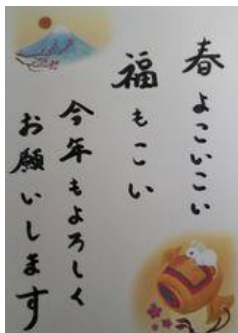 春よこいこい
福もこい
今年もよろしく
お願いします